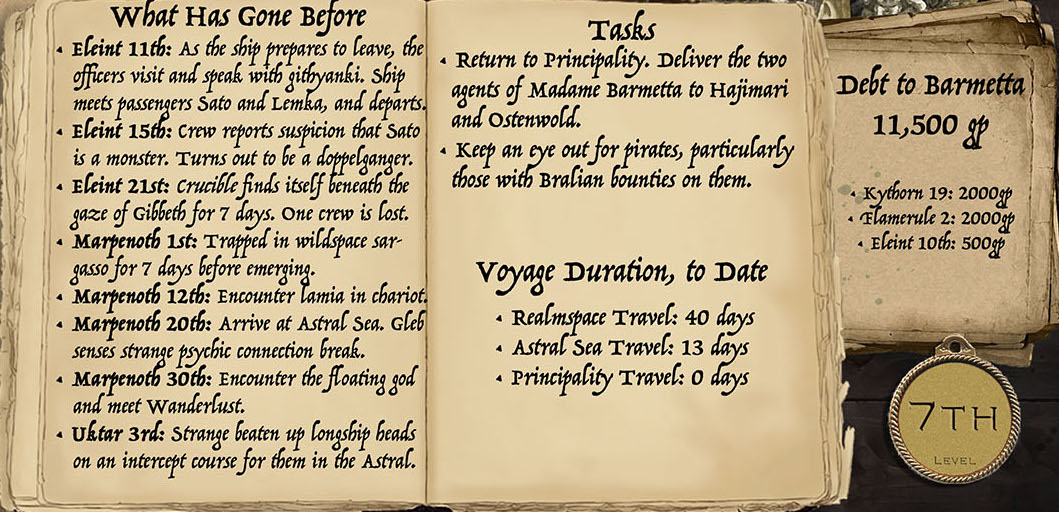 What Has Gone Before
• Eleint 11th: As the ship prepares to leave, the
officers visit and speak with githyanki. Ship
meets passengers Sato and Lemka, and departs.
• Eleint 15th: Crew reports suspicion that Sato
is a monster. Turns out to be a doppelganger.
• Eleint 21st: Crucible finds itself beneath the
gaze of Gibbeth for 7 days. One crew is lost.
• Marpenoth 1st: Trapped in wildspace sar-
gasso for 7 days before emerging.
• Marpenoth 12th: Encounter lamia in chariot.
• Marpenoth 20th: Arrive at Astral Sea. Gleb
senses strange psychic connection break.
• Marpenoth 30th: Encounter the floating god
and meet Wanderlust.
• Uktar 3rd: Strange beaten up longship heads
on an intercept course for them in the Astral.
Tasks
• Return to Principality. Deliver the two
agents of Madame Barmetta to Hajimari
and Ostenwold.
• Keep an eye out for pirates, particularly
those with Bralian bounties on them.
Voyage Duration, to Date
• Realmspace Travel: 40 days
• Astral Sea Travel: 13 days
• Principality Travel: 0 days
Debt to Barmetta
11,500 gp
• Kythorn 19: 2000gp
• Flamerule 2: 2000gp
• Eleint 10th: 500gp
7TH
LEVEL